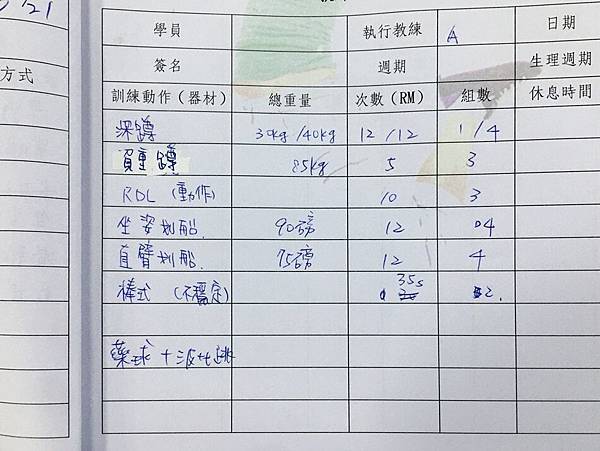 21
方式
學員 執行教練 A 日期
簽名 週期 生理週期
訓練動作（器材） 總重量 次數（RM） 組數 休息時間
深蹲 30kg/40kg 12/12 1/4
負重蹲 85kg 5 3
RDL（動作） 10 3
坐姿划船 90磅 12 4
直臂划船 75磅 12 4
棒式（不穩定） 35s 2
藥球+波比跳